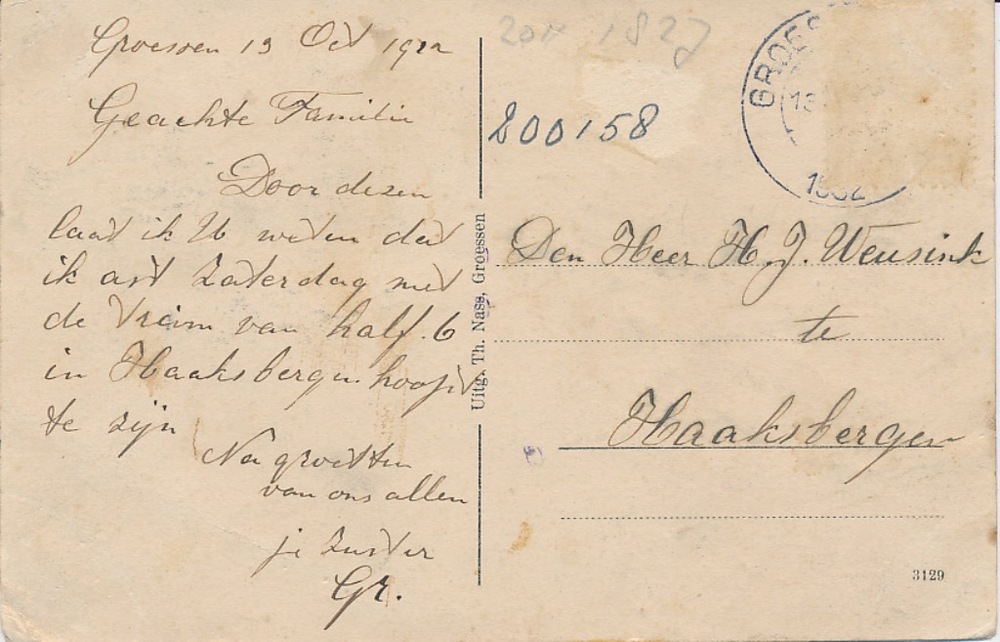 Groessen 13 Oct 1922
Geachte Familie
Door dezen
laat ik U weten dat
ik ast Zaterdag met
de treim van half. 6
in Haaksbergen hoopt
te zijn
Na groetten
van ons allen
je Zuster
Gr.
Uitg. Th. Nass, Groessen
1827
200158
GROES
13
Den Heer H. J. Weusink
te
Haaksbergen
3129